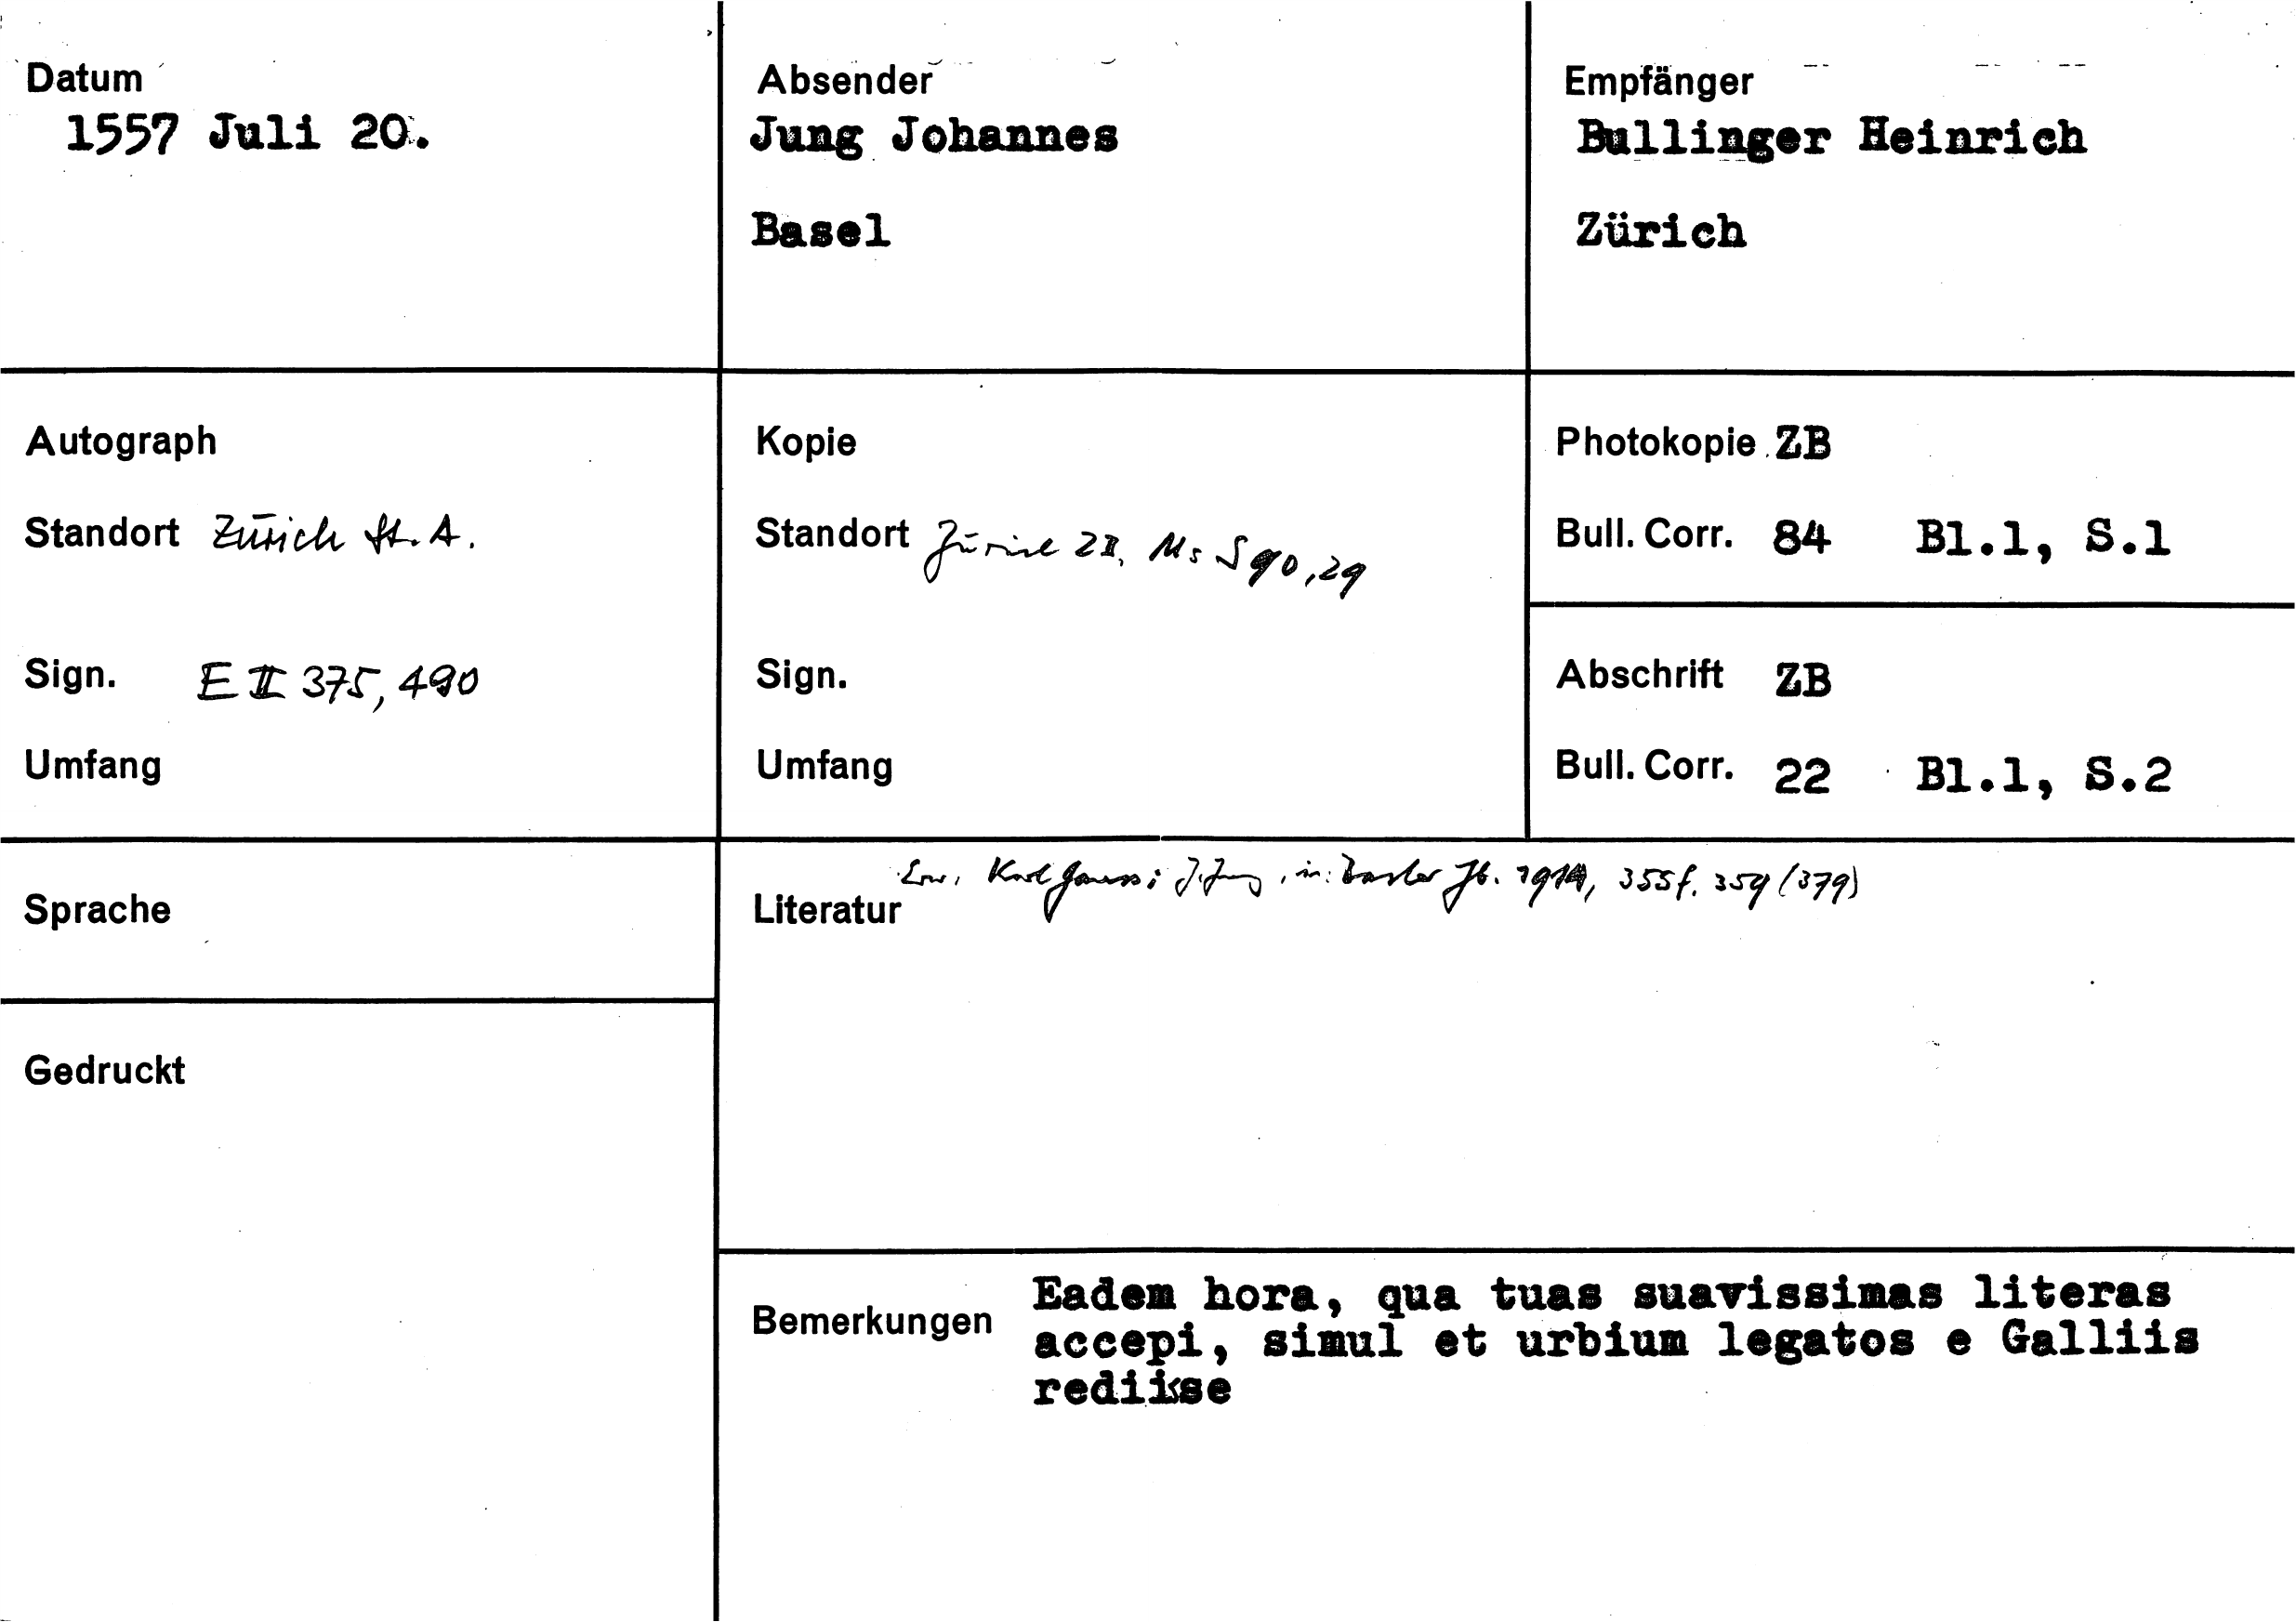 Datum
1557 Juli 20.
Absender
Jung Johannes
Basel
Empfänger
Bullinger Heinrich
Zürich
Autograph
Standort Zürich St. A.
Sign. E II 375, 490
Umfang
Kopie
Standort Zürich ZB, Ms S 90, 29
Sign.
Umfang
Photokopie ZB
Bull. Corr. 84 Bl.1, S.1
Abschrift ZB
Bull. Corr. 22 Bl.1, S.2
Sprache
Gedruckt
Erw. Karl Gauss: J. Jung, in: Basler Jb. 1914, 355f. 359 (379)
Literatur
Bemerkungen
Eadem hora, qua tuas suavissimas literas
accepi, simul et urbium legatos e Galliis
rediisse